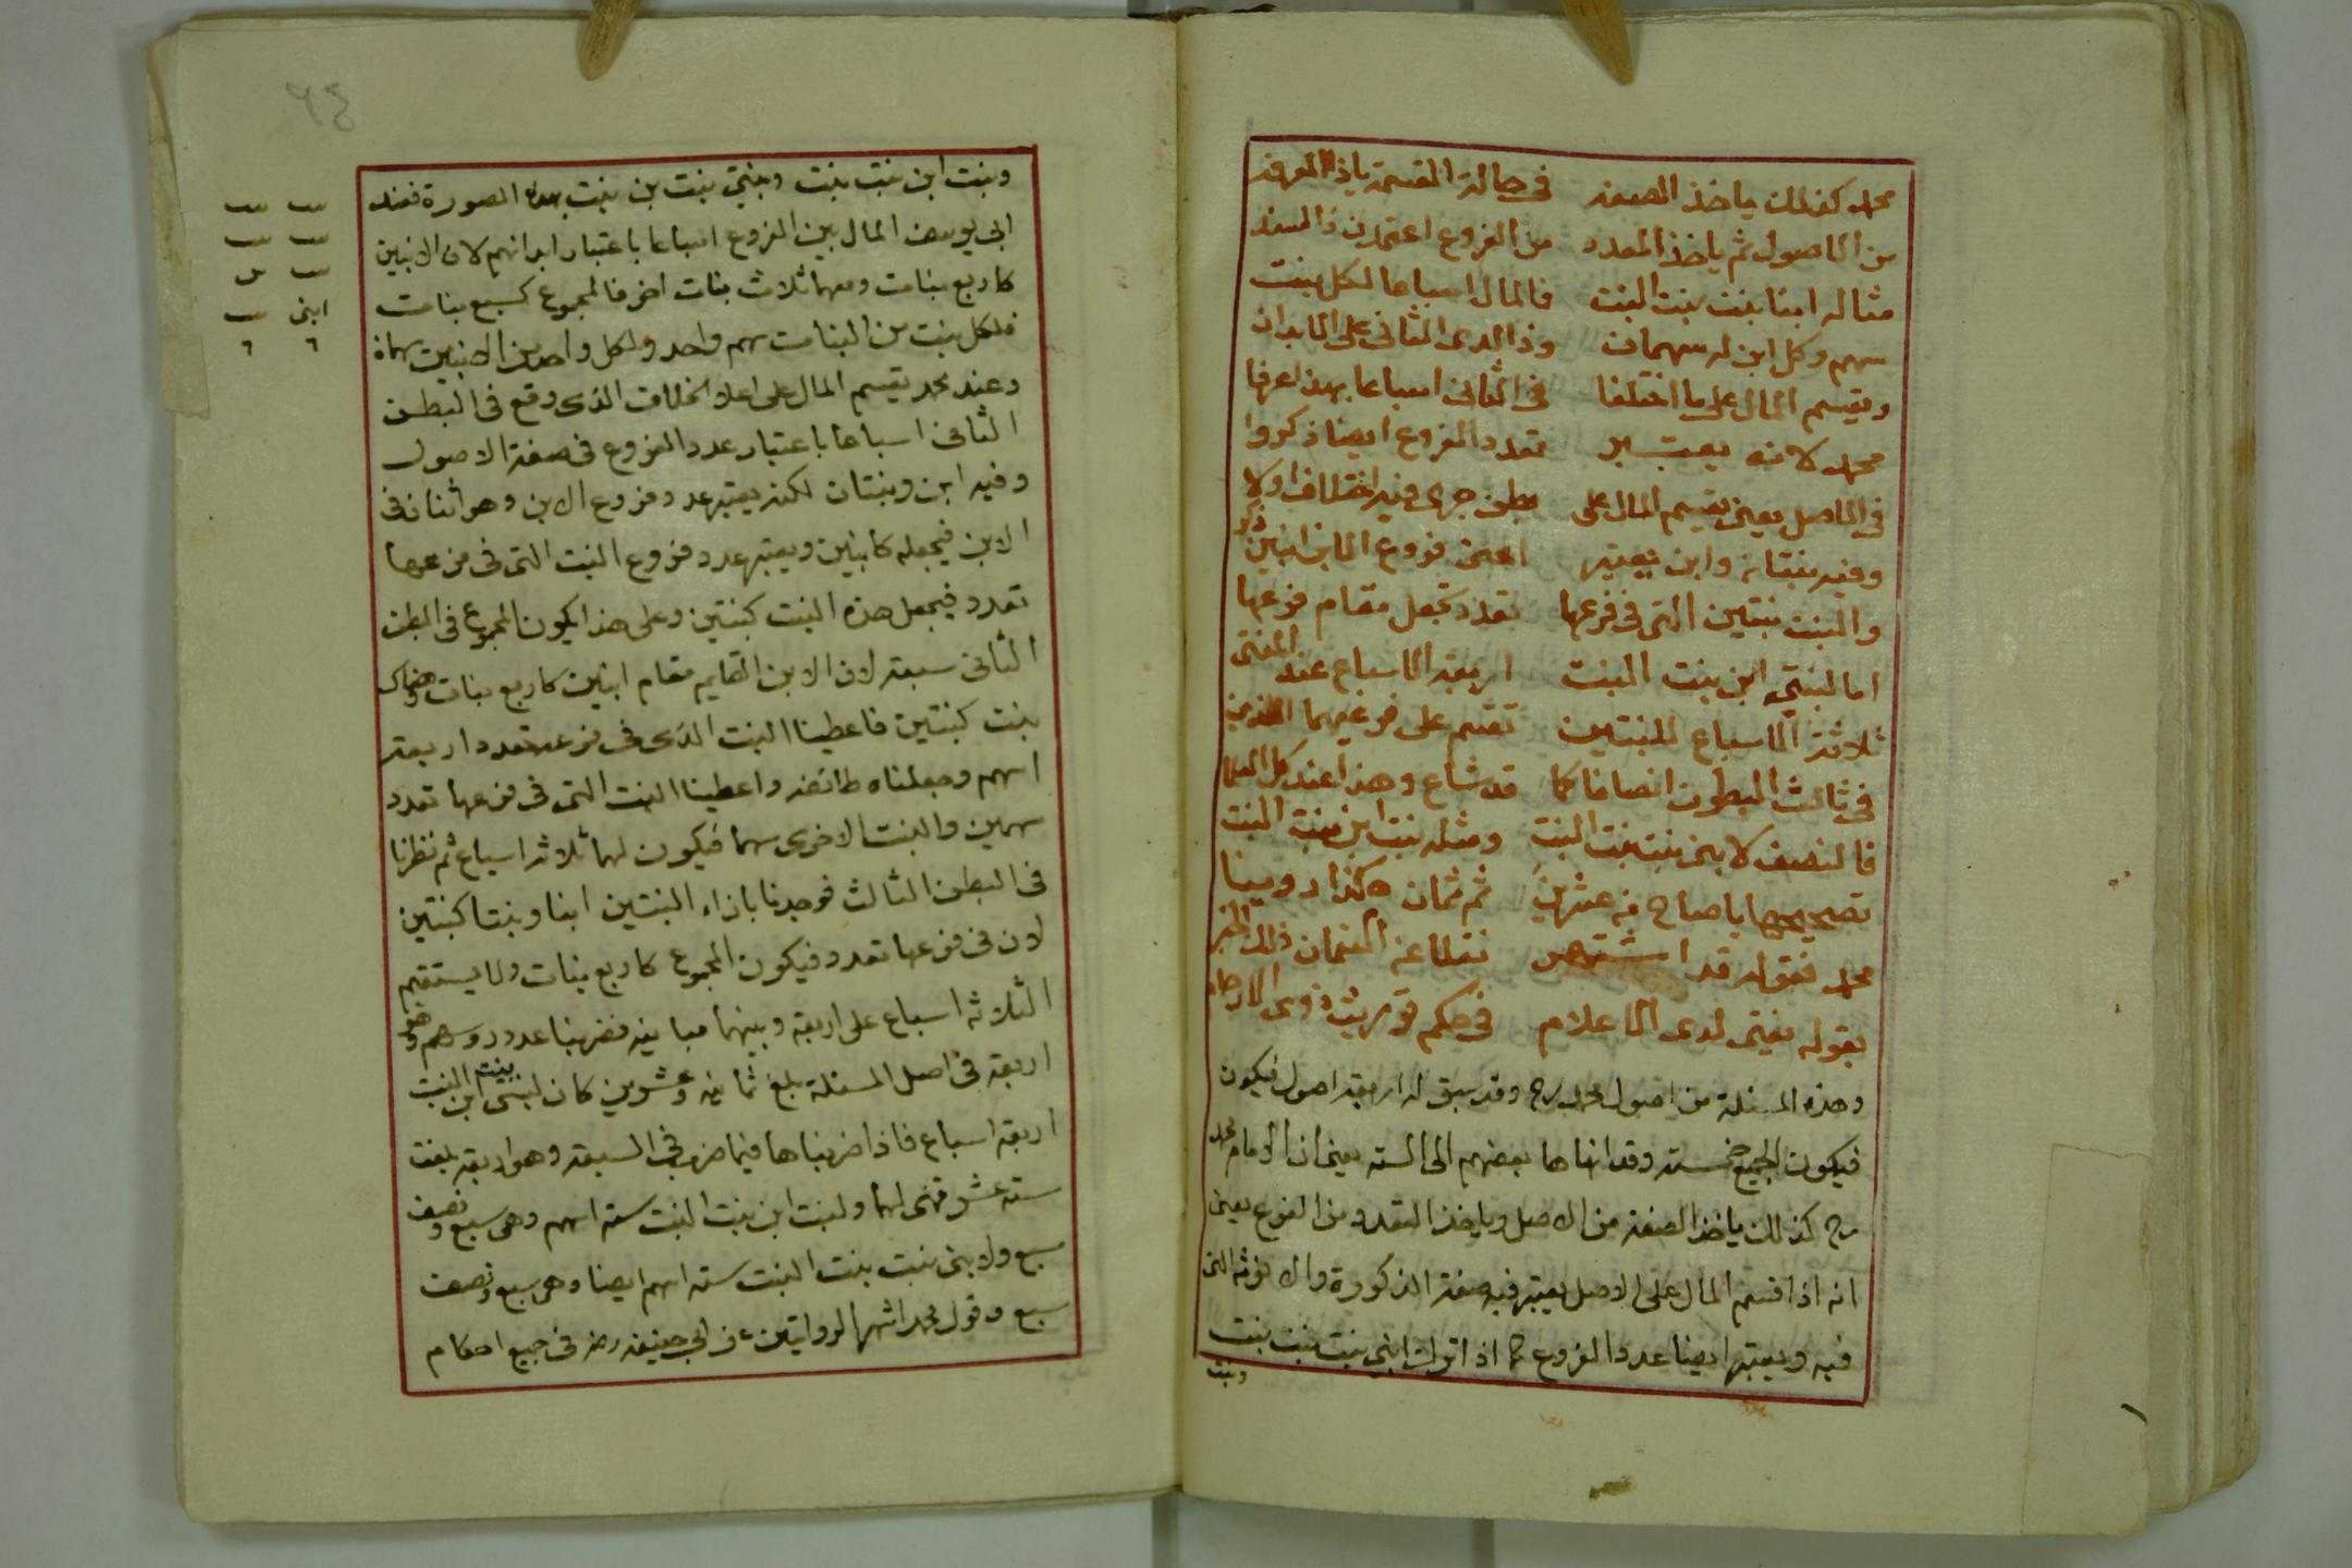 محمد كذلك ياخذ الصفه في حالة القسمة ياذا المعرفه
من الاصول ثم ياخذ العدد من الفروع اعتمدن ذا السند
مثاله ابنا بنت بنت البنت فالمال اسباعا لكل بنت
سهم وكل ابن له سهمان وذا لدى الثاني على الابدان
ويقسم المال على ما اختلفا في الثاني اسباعا بهذا عرفا
محمد لانه يعتبر تعدد الفروع ايضا ذكروا
في الاصل يعني يقسم المال على بطن جرى فيه اختلاف اولا
وفيه بنتان وابن يعتبر اعني فروع الابن ابنين ذكر
والبنت بنتين التي في فرعها تعدد تجعل مقام فرعها
اما لبنتي ابن بنت البنت اربعة الاسباع عند المفتى
ثلاثة الاسباع للبنتين تقسم على فرعيهما
في ثالث البطون انصافا كما قد شاع وهذا عند كل العلما
فالنصف لابني بنت بنت البنت ومثله بنت ابن بنت البنت
تصحيحها ياصاح من عشرين ثم ثمان هكذا روينا
محمد فقوله قد اشتهر نقلا عن النعمان ذلك الخبر
بقوله يفتى لدى الاعلام في حكم توريث ذوي الارحام
وهذه المسئلة من اصول محمد رح وقد سبق له اربعة اصول فيكون
فيكون الجميع خمسته وقد انهاها بعضهم الى السته يعني ان الامام محمد
رح كذلك ياخذ الصفة من الاصل وياخذ التعدد من الفروع يعني
انه اذا قسم المال على الاصل يعتبر فيه صفة الذكورة والانوثة التي
فيه ويعتبر ايضا عدد الفروع كما اذا ترك ابني بنت بنت بنت
وبنت
٦٤
وبنت ابن بنت بنت وبنتي بنت بن بنت بهذه الصورة فعند
ابي يوسف المال بين الفروع اسباعا باعتبار ابدانهم لان الابنين
كاربع بنات ومعهما ثلاث بنات اخر فالمجموع كسبع بنات
فلكل بنت من البنات سهم واحد ولكل واحد من الابنين سهمان
وعند محمد يقسم المال على اعلا الخلاف الذي وقع في البطن
الثاني اسباعا باعتبار عدد الفروع في صفة الاصول
وفيه ابن وبنتان لكنه يعتبر عدد فروع الابن وهو اثنان في
الابن فيجعله كابنين ويعتبر عدد فروع البنت التي في فرعها
تعدد فيجعل هذه البنت كبنتين وعلى هذا يكون المجموع في البطن
الثاني سبعة لان الابن القايم مقام ابنين كاربع بنات وهناك
بنت كبنتين فاعطينا البنت الذي في فرعه تعدد اربعة
اسهم وجعلناه طائفه واعطينا البنت التي في فرعها تعدد
سهمين والبنت الاخرى سهما فيكون لهما ثلاثه اسباع ثم نظرنا
في البطن الثالث فوجدنا بازاء البنتين ابنا وبنتا كبنتين
لان في فرعها تعدد فيكون المجموع كاربع بنات ولا يستقيم
الثلاثه اسباع على اربعة وبينهما مباينه فضربنا عدد روسهم وهو
اربعة في اصل المسئلة بلغ ثمانيه وعشرين كان لبنتي ابن بنت البنت
اربعة اسباع فاذا ضربناها فيما ضرب في السبعة وهو اربعة بلغت
سته عشر فهي لهما ولبنت ابن بنت البنت سته اسهم وهي سبع ونصف
سبع ولابني بنت بنت البنت سته اسهم ايضا وهي سبع ونصف
سبع وقول محمد اشهر الروايتين عن ابي حنيفه رضه في جميع احكام
ابني
٦ ٦